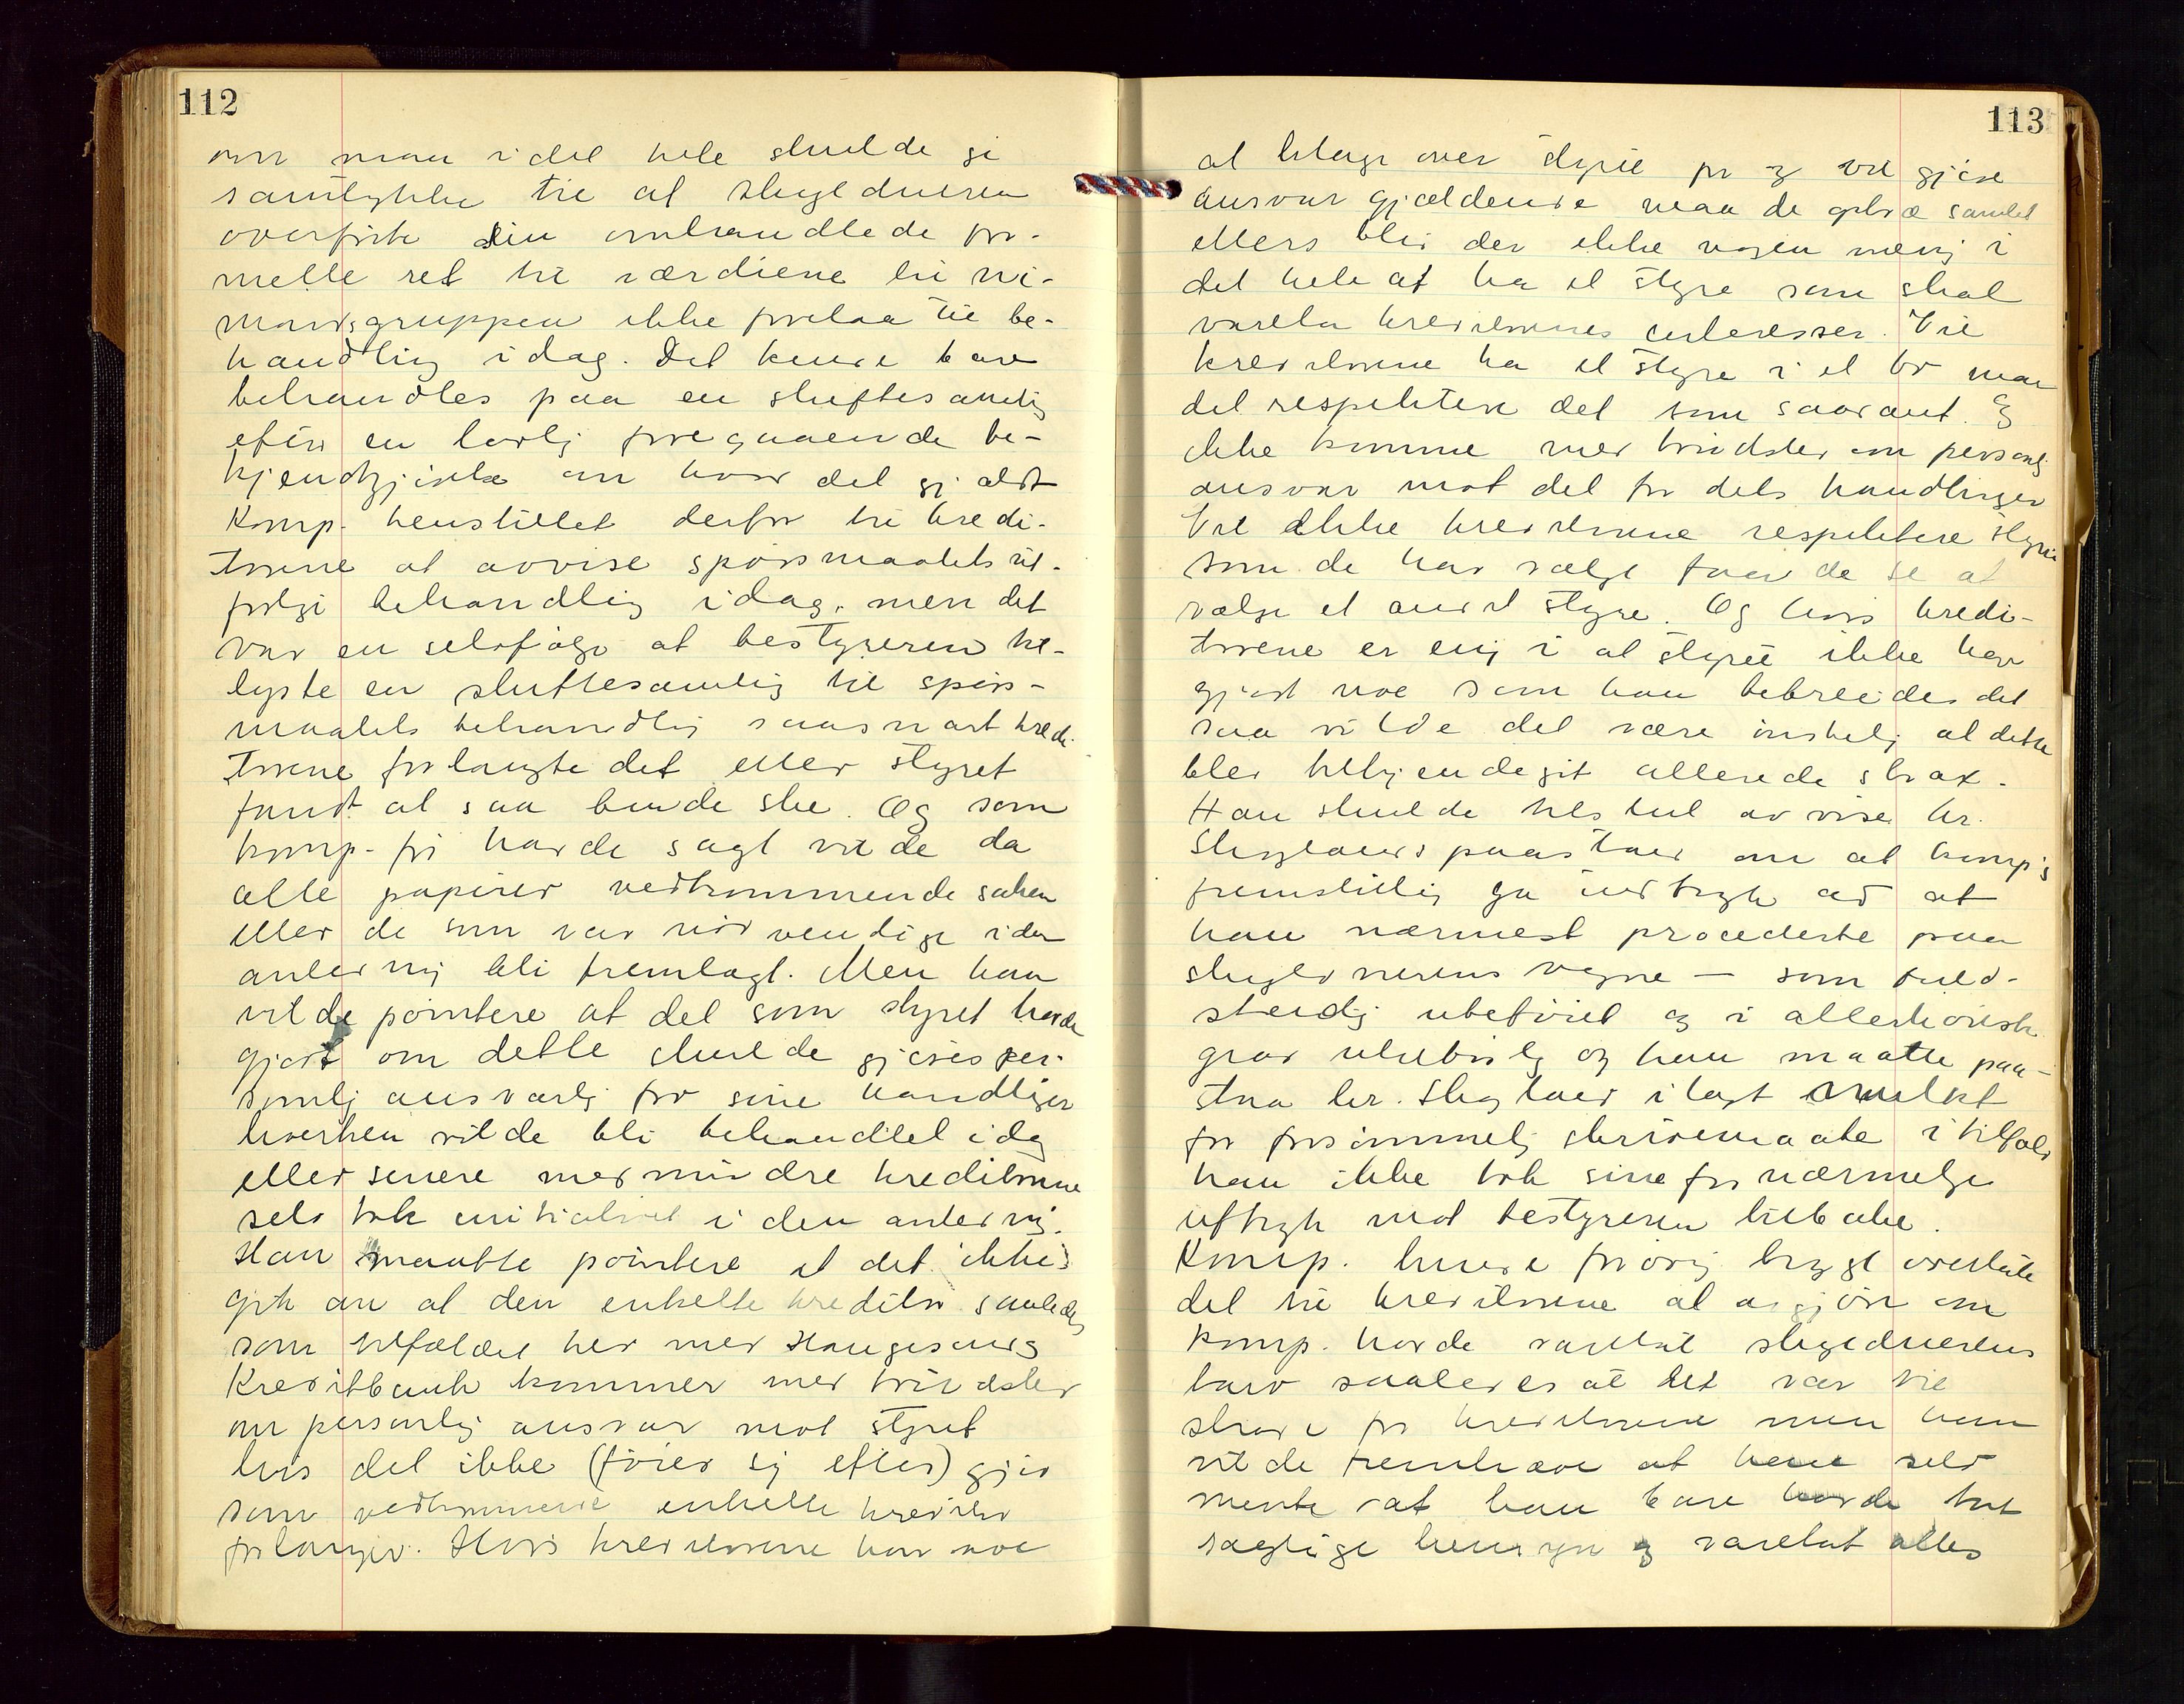 112
om man i det hele skulde gi
samtykke til at skyldneren
overførte sin omhandlede for-
melle ret til værdiene til
mandsgruppen ikke forelaa til be-
handling idag. Det kunde bare
behandles paa en skiftesamling
efter en lovlig foregaaende be-
kjendtgjørelse om hvad det gjaldt
Komp. henstillet derfor til kredi-
torene at avvise spørsmaalets
behandling idag, men det
var en selvfølge at bestyreren til-
lyste en skiftesamling til spørs-
maalets behandling saasnart kredi-
torene forlangte det eller styret
fandt at saa burde ske. Og som
komp. før havde sagt vilde da
alle papirer vedkommende saken
eller de som var nødvendige i den
anledning bli fremlagt. Men han
vilde pointere at det som styret havde
gjort om dette skulde gjøres per-
sonlig ansvarlig for sine handlinger
hverken vilde bli behandlet idag
eller senere medmindre kreditorene
selv tok initiativet i den anledning.
Han maatte pointere at det ikke
gik an at den enkelte kreditor saaledes
som tilfældet her med Haugesunds
Kreditbank kommer med trudsler
om personlig ansvar mot styret
hvis det ikke (føier sig efter) gjør
som vedkommende enkelte kreditor
forlanger. Hvis kreditorene har noe
113
at klage over styret for og vil gjøre
ansvar gjældende maa de optræ samlet
ellers blir der ikke nogen mening i
det hele at ha et styre som skal
vareta kreditorenes interesser. Vil
kreditorene ha et styre i et bo maa
det respektere det som saadant. Og
ikke komme med trudsler om personlig
ansvar mot det for dets handlinger
Vil ikke kreditorene respektere styret
som de har valgt faar de se at
vælge et andet styre. Og hvis kredi-
torene er enig i at styret ikke har
gjort noe som kan bebreides det
saa vilde det være ønskelig at dette
blev tilkjendegit allerede strax.
Han skulde tilslut avvise hr.
paastand om at komp's
fremstilling ga indtryk av at
han nærmest procederte paa
skyldnerens vegne — som fuld-
stendig ubeføiet og i allerhøieste
grad utilbørlig og han maatte paa-
staa hr. ilagt mulkt
for forsømmelig skrivemaate i tilfælde
han ikke tok sine fornærmelige
uttryk mot bestyreren tilbake.
Komp. kunde forøvrig trygt overlate
det til kreditorene at avgjøre om
komp. havde varetat skyldnerens
tarv saaledes at det var til
skade for kreditorene men han
vilde fremhæve at han selv
mente at han bare havde tat
saglige hensyn og varetat alles